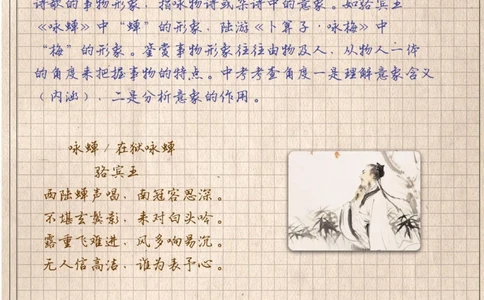 诗歌的事物形象，指咏物诗或某诗中的意象。如骆宾王
《咏蝉》中“蝉”的形象，陆游《卜算子·咏梅》中
“梅”的形象。鉴赏事物形象往往由物及人，从物人一体
的角度来把握事物的特点。中考考查角度一是理解意象含义
（内涵），二是分析意象的作用。
咏蝉/在狱咏蝉
骆宾王
西陆蝉声唱，南冠客思深。
不堪玄鬓影，来对白头吟。
露重飞难进，风多响易沉。
无人信高洁，谁为表予心。